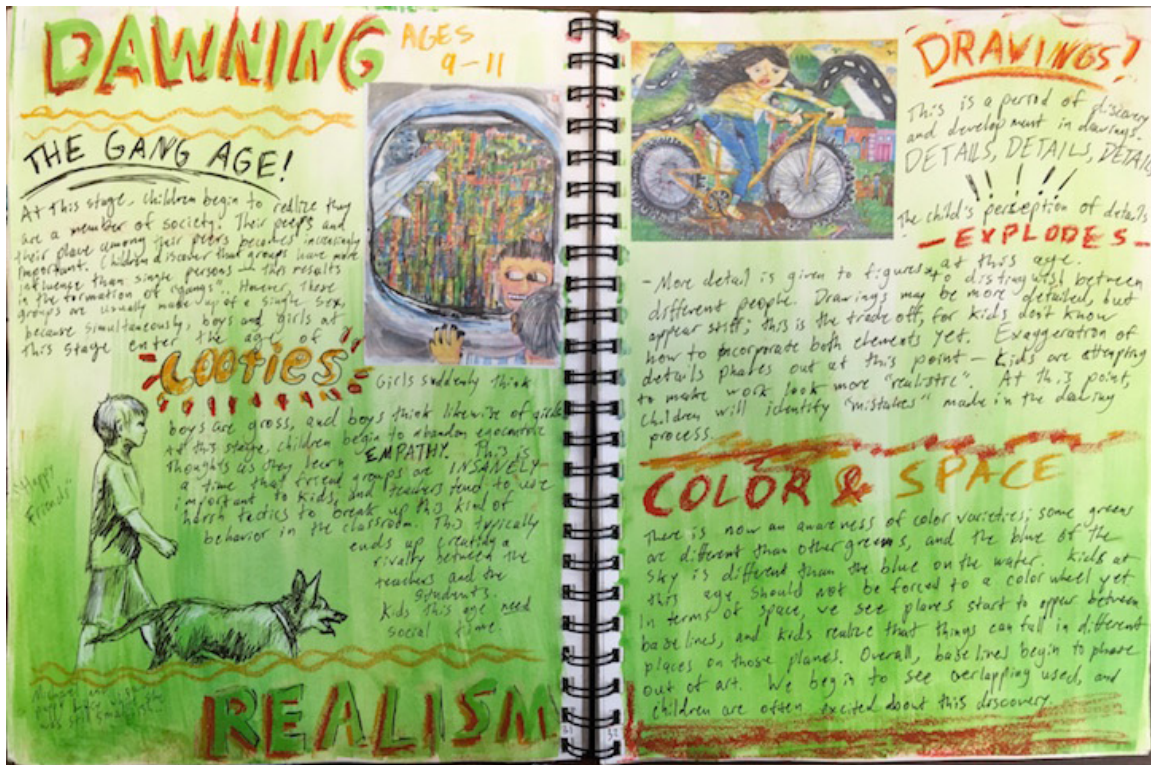 DAWNING
AGES
9-11
THE GANG AGE!
At this stage, children begin to realize they
are a member of society. Their peeps and
their place among their peers becomes increasingly
important. Children discover that groups have more
influence than single persons — this results
in the formation of "gangs". However, these
groups are usually made up of a single sex,
because simultaneously, boys and girls at
this stage enter the age of
COOTIES
Girls suddenly think
boys are gross, and boys think likewise of girls.
At this stage, children begin to abandon egocentric
thoughts as they learn EMPATHY. This is
a time that friend groups are INSANELY
important to kids, and teachers tend to use
harsh tactics to break up this kind of
behavior in the classroom. This typically
ends up creating a
rivalry between the
teachers and the
students.
Kids this age need
social time.
"Happy
Friends"
Michael
puppy
was still small
REALISM
31
DRAWINGS!
This is a period of discovery
and development in drawings.
DETAILS, DETAILS, DETAILS
!!!!!!
The child's perception of details
- EXPLODES -
at this age.
- More detail is given to figures to distinguish between
different people. Drawings may be more detailed, but
appear stiff; this is the trade off, for kids don't know
how to incorporate both elements yet. Exaggeration of
details phases out at this point - kids are attempting
to make work look more "realistic". At this point,
children will identify "mistakes" made in the drawing
process.
COLOR & SPACE
There is now an awareness of color varieties; some greens
are different than other greens, and the blue of the
sky is different than the blue on the water. Kids at
this age should not be forced to a color wheel yet.
In terms of space, we see planes start to appear between
baselines, and kids realize that things can fall in different
places on those planes. Overall, baselines begin to phase
out of art. We begin to see overlapping used, and
children are often excited about this discovery.
32